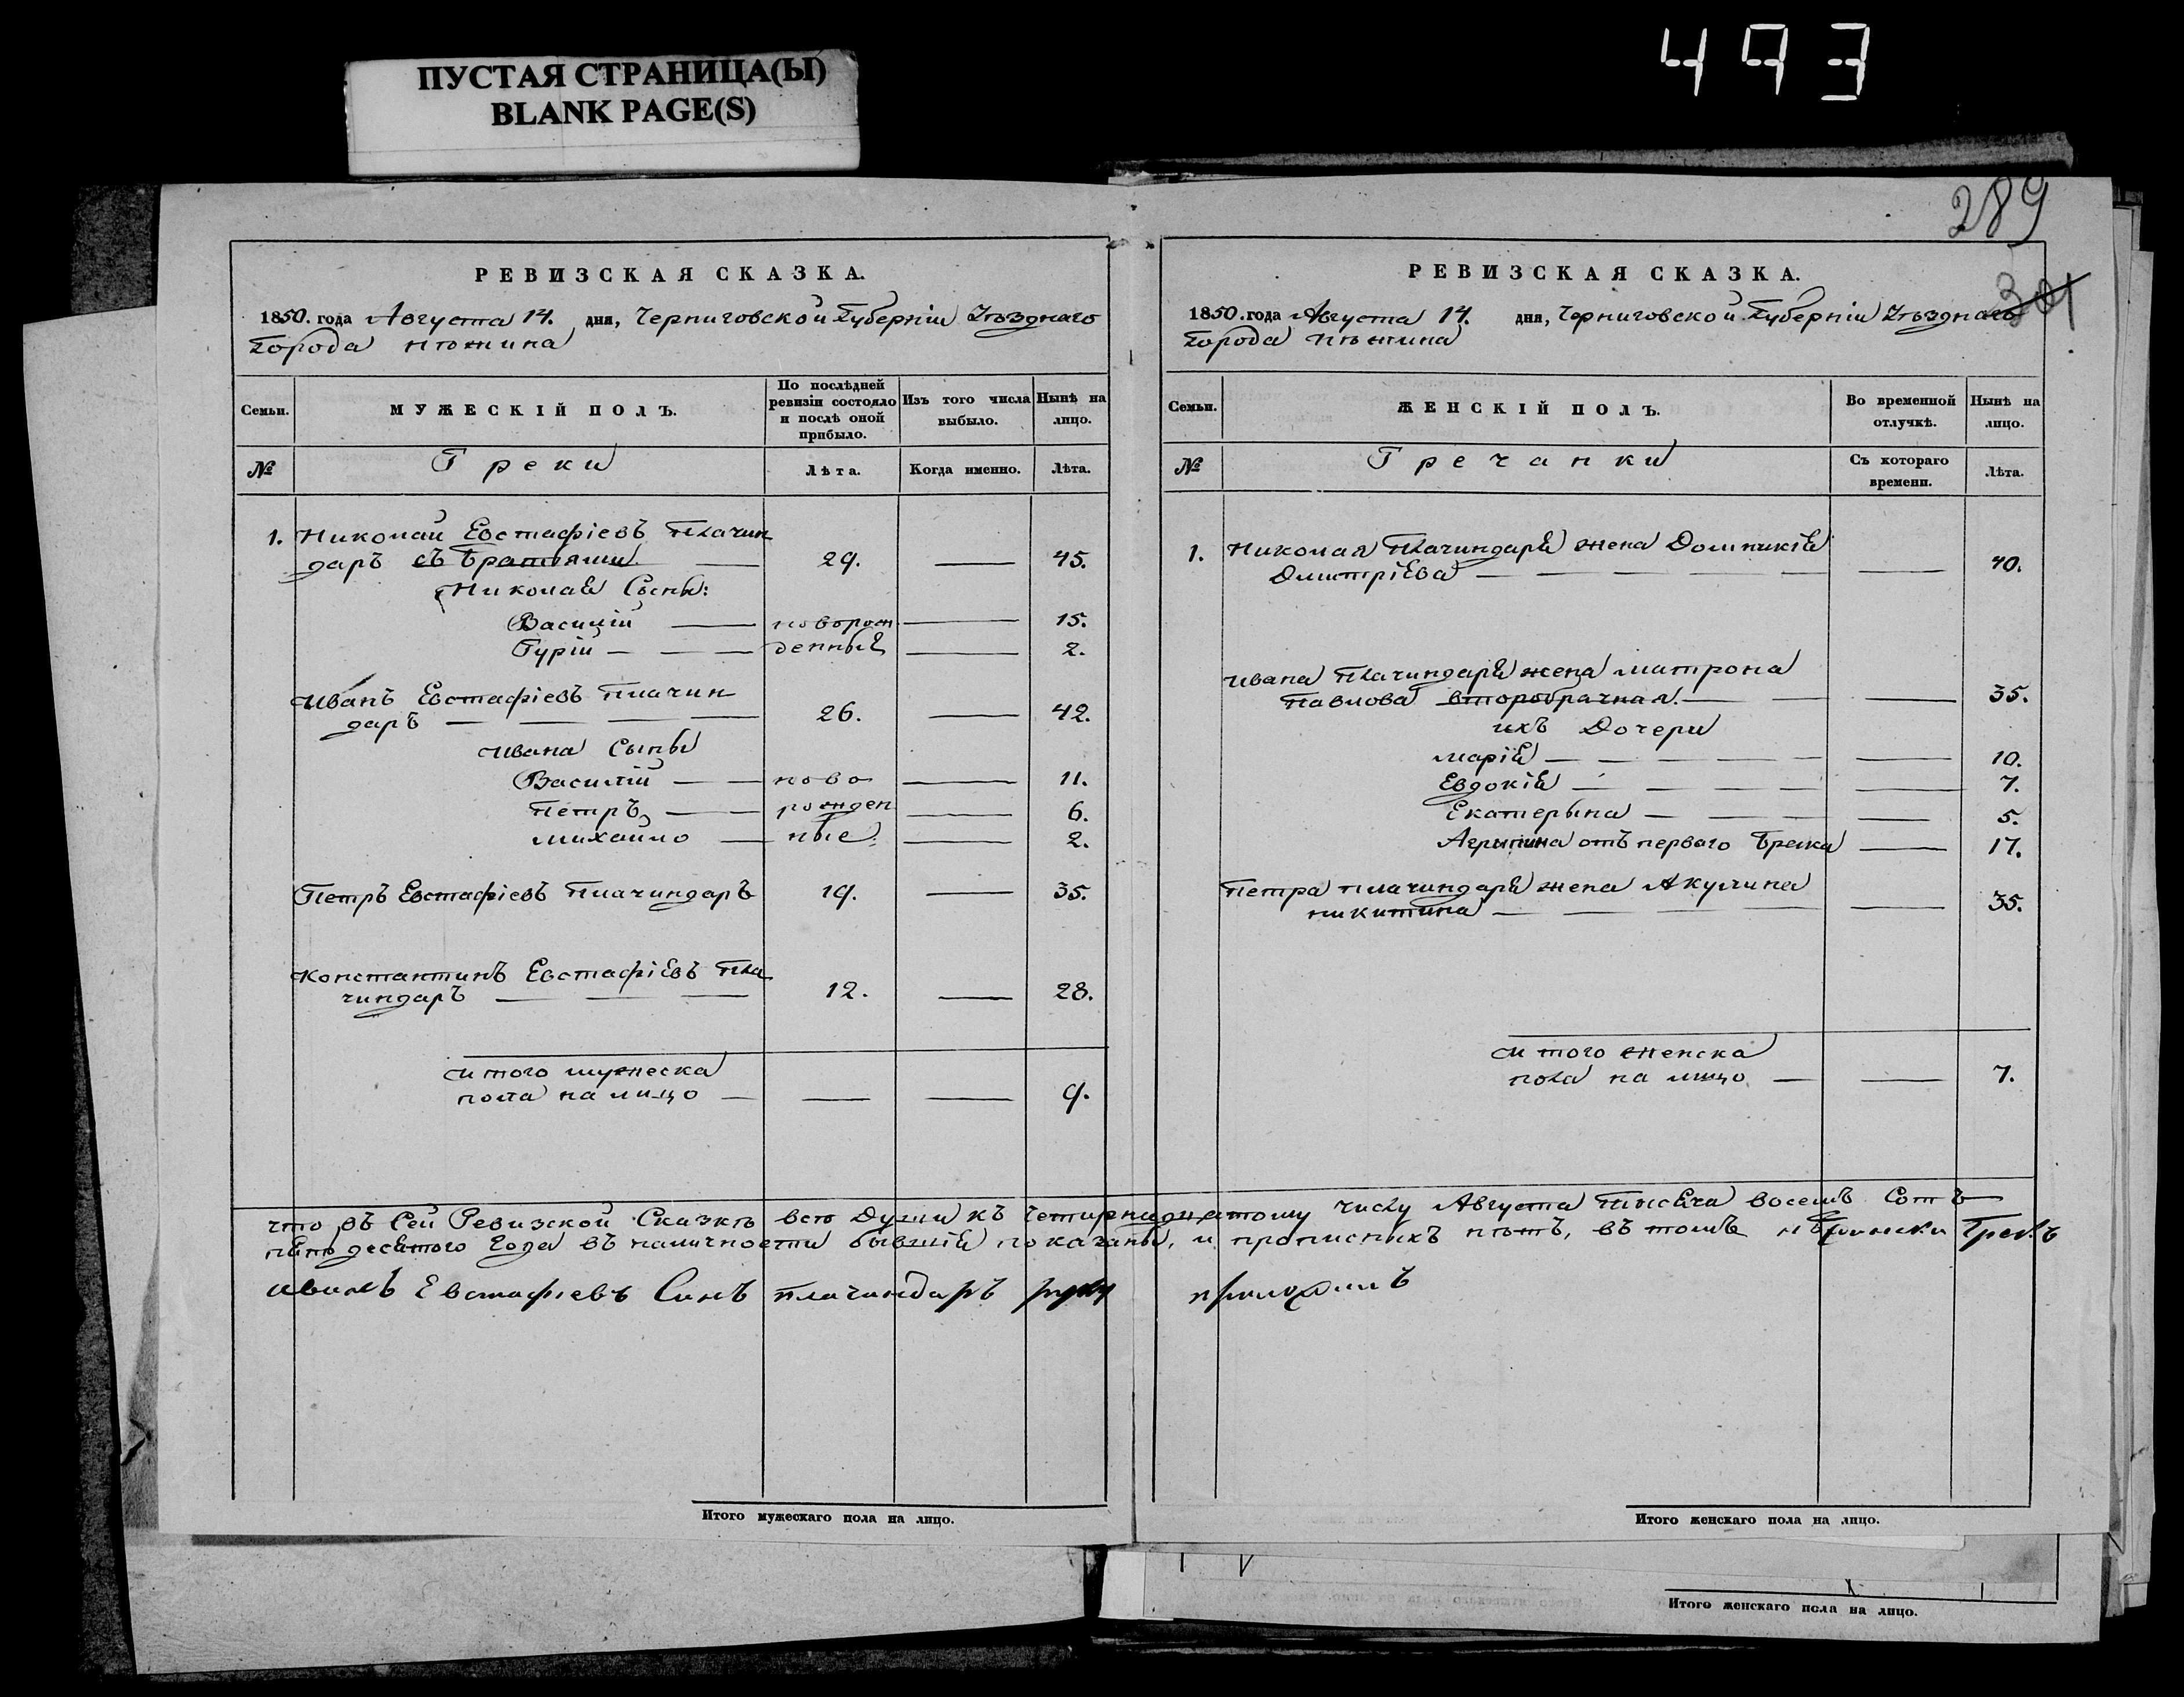 493
ПУСТАЯ СТРАНИЦА(Ы)
BLANK PAGE(S)
289
301
РЕВИЗСКАЯ СКАЗКА.
1850. года Августа 14. дня, Черниговской Губерніи Уѣзднаго
Города Нѣжина
Семьи. МУЖЕСКІЙ ПОЛЪ. По послѣдней ревизіи состояло и послѣ оной прибыло. Изъ того числа выбыло. Нынѣ на лицо.
№ Греки Лѣта. Когда именно. Лѣта.
1. Николай Евстафіевъ Плачин
даръ съ братьями. — 29. — 45.
Николая Сыны:
Василій — новорож — 15.
Гурій — — — денныя — 2.
Иванъ Евстафіевъ Плачин
даръ — — — — 26. — 42.
Ивана Сыны
Василій — — ново — 11.
Петръ — — рожден — 6.
Михайло — ные. — 2.
Петръ Евстафіевъ Плачиндаръ 19. — 35.
Константинъ Евстафіевъ Пла
чиндаръ — — — 12. — 28.
Итого мужеска
пола на лицо — — — 9.
РЕВИЗСКАЯ СКАЗКА.
1850. года Августа 14. дня, Черниговской Губерніи Уѣзднаго
Города Нѣжина
Семьи. ЖЕНСКІЙ ПОЛЪ. Во временной отлучкѣ. Нынѣ на лицо.
№ Гречанки Съ котораго времени. Лѣта.
1. Николая Плачиндаря жена Домникія
Дмитріева — — — — — — 40.
Ивана Плачиндаря жена Матрона
Павлова второбрачная. — — — 35.
ихъ Дочери
Марія — — — — — — 10.
Евдокія — — — — — 7.
Екатерына — — — — 5.
Агрыпина отъ перваго Брака — 17.
Петра Плачиндаря жена Акулина
Никитина — — — — — 35.
Итого женска
пола на лицо — — 7.
что въ Сей Ревизской Сказкѣ всѣ Души къ четирнадцятому числу Августа тисяча восемъ Сотъ
пятодесятого Года въ наличности бывшія показаны, и прописныхъ нѣтъ, въ томъ Нѣжински Грекъ
Иванъ Евстафіевъ Синъ Плачиндаръ руку приложилъ
Итого мужескаго пола на лицо.
Итого женскаго пола на лицо.
Итого женскаго пола на лицо.